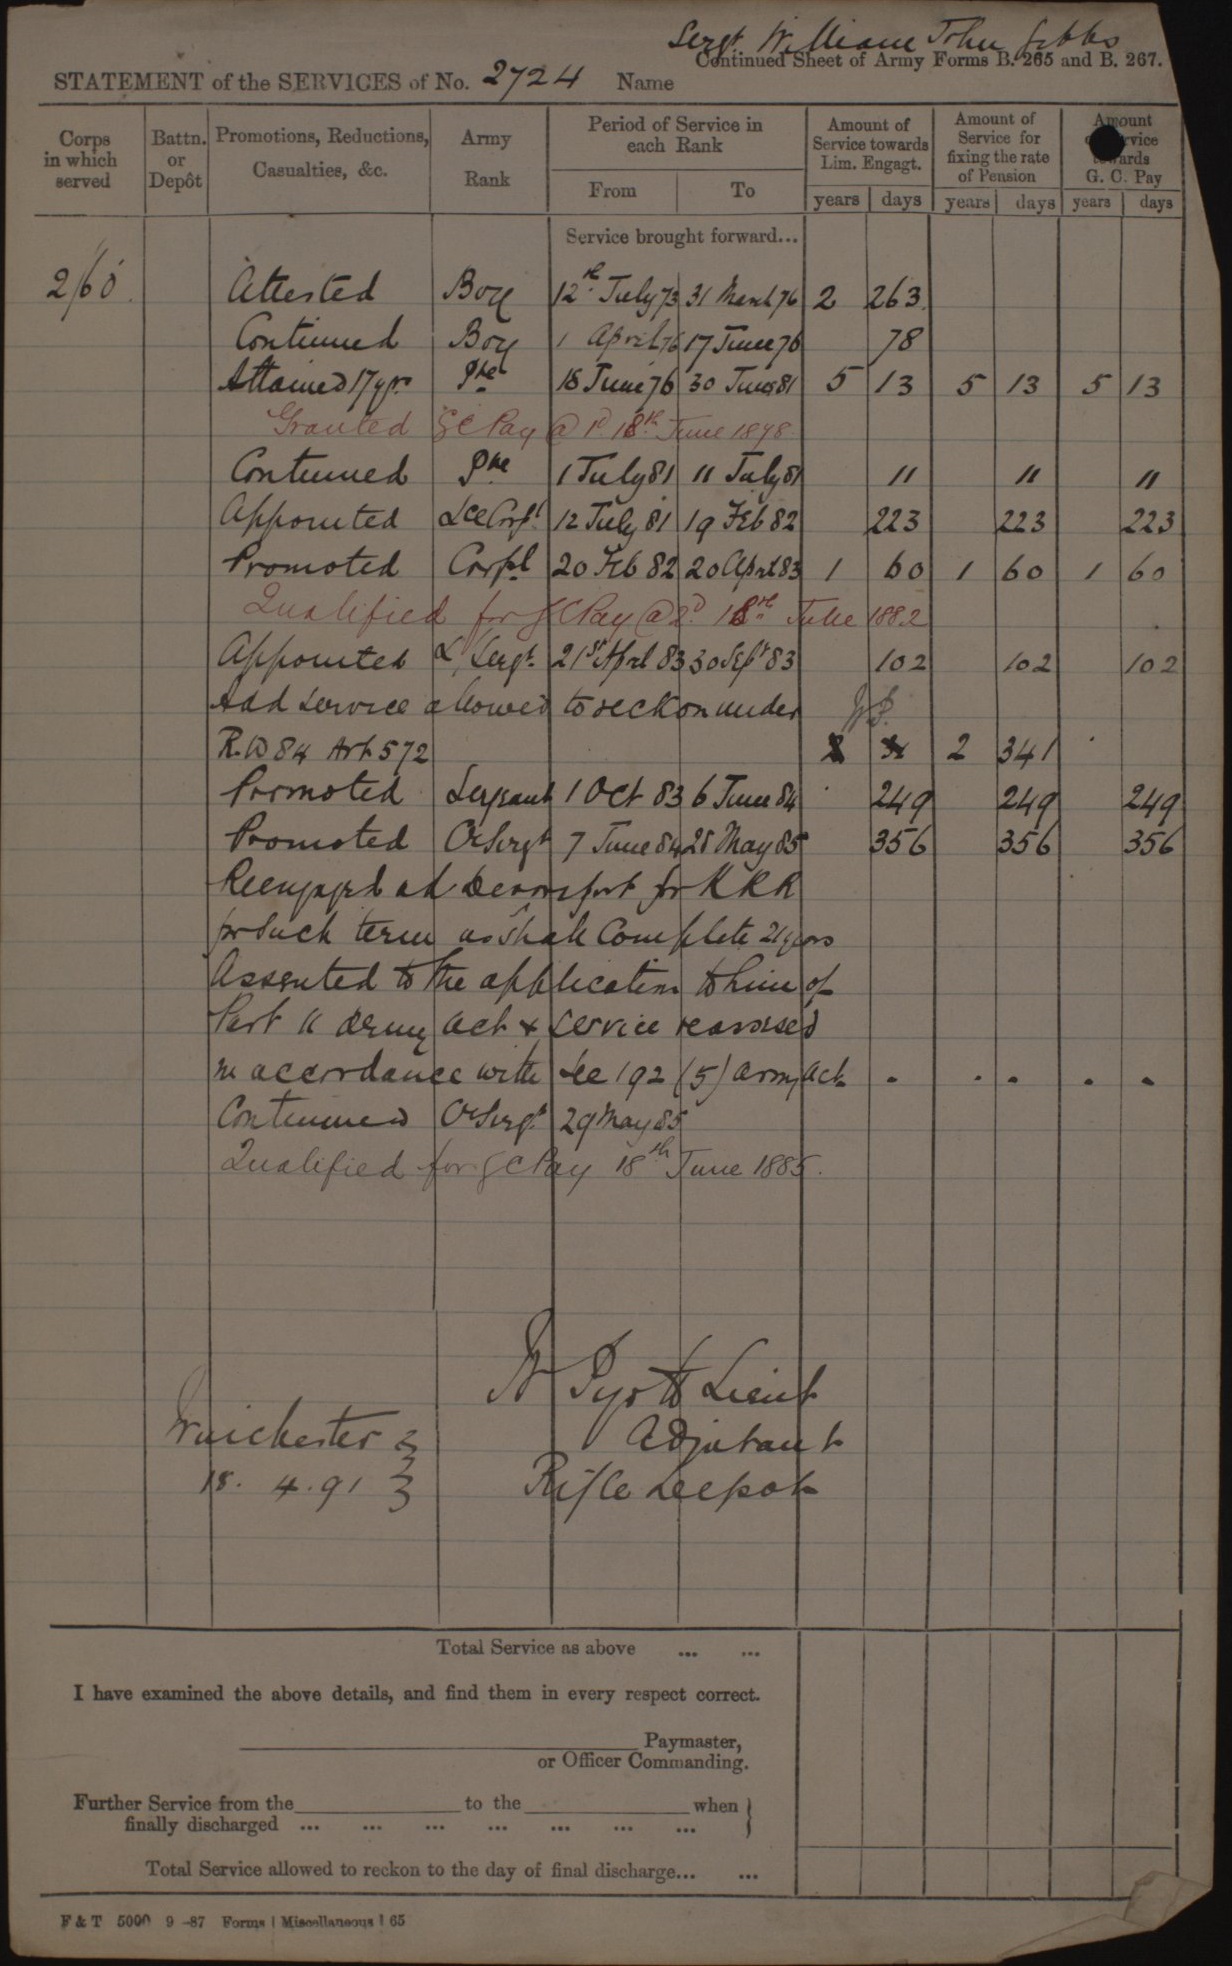 Sergt William John Gibbs
Continued Sheet of Army Forms B. 265 and B. 267.
STATEMENT of the SERVICES of No. 2724 Name
Corps in which served | Battn. or Depôt | Promotions, Reductions, Casualties, &c. | Army Rank | Period of Service in each Rank From To | Amount of Service towards Lim. Engagt. years days | Amount of Service for fixing the rate of Pension years days | Amount of Service towards G. C. Pay years days
Service brought forward...
2/60 Attested Boy 12th July 73 31 March 76 2 263
Continued Boy 1 April 76 17 June 76 78
Attained 17 yrs Pte 18 June 76 30 June 81 5 13 5 13 5 13
Granted GC Pay @ 1d 18th June 1878
Continued Pte 1 July 81 11 July 81 11 11 11
Appointed Lce Corpl 12 July 81 19 Feb 82 223 223 223
Promoted Corpl 20 Feb 82 20 Aprl 83 1 60 1 60 1 60
Qualified for GC Pay @ 2d 18th June 1882
Appointed L/Sergt 21st Aprl 83 30 Sept 83 102 102 102
Add service allowed to reckon under
R.W 84 Art 572 2 341
Promoted Sergeant 1 Oct 83 6 June 84 249 249 249
Promoted Cr Sergt 7 June 84 28 May 85 356 356 356
Reengaged at Devonport for KRR
for such term as shall Complete 21 years
Assented to the application to him of
Part II Army Act & service revised
in accordance with Sec 192 (5) Army Act . . . . .
Continued Cr Sergt 29 May 85
Qualified for GC Pay 18th June 1885.
W Pyott Lieut
Winchester Adjutant
18. 4. 91 Rifle Depot
Total Service as above ... ...
I have examined the above details, and find them in every respect correct.
Paymaster,
or Officer Commanding.
Further Service from the to the when
finally discharged ... ... ... ... ... ... ...
Total Service allowed to reckon to the day of final discharge... ...
F & T 5000 9 -87 Forms | Miscellaneous | 65